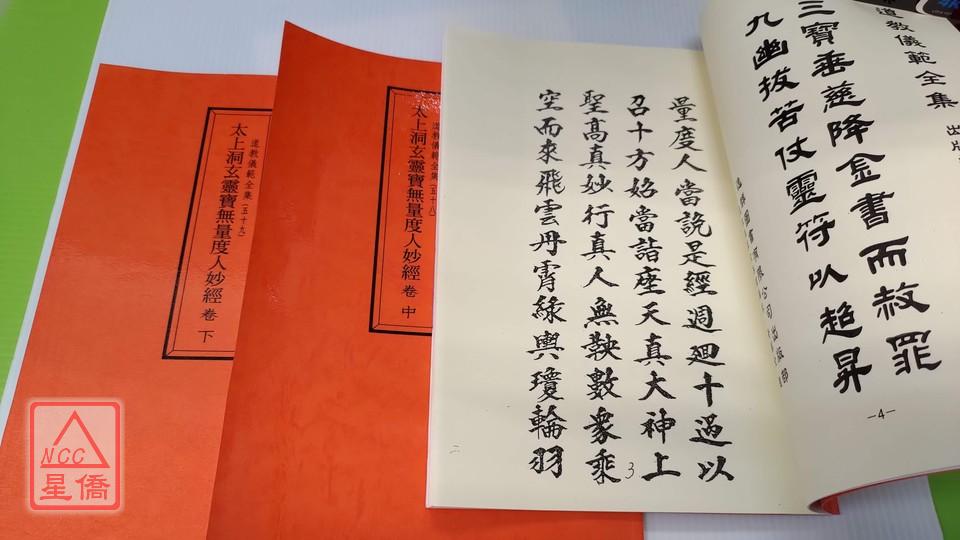 道教儀範全集(五十九)
太上洞玄靈寶無量度人妙經 卷 下
道教儀範全集(五十八)
太上洞玄靈寶無量度人妙經 卷 中
量度人當說是經週廻十過以
召十方始當詣座天真大神上
聖高真妙行真人無鞅數眾乘
空而來飛雲丹霄綠輿瓊輪羽
二
3
道教儀範全集 出版
三寶垂慈降金書而赦罪
九幽拔苦仗靈符以超昇
-4-
NCC
星僑